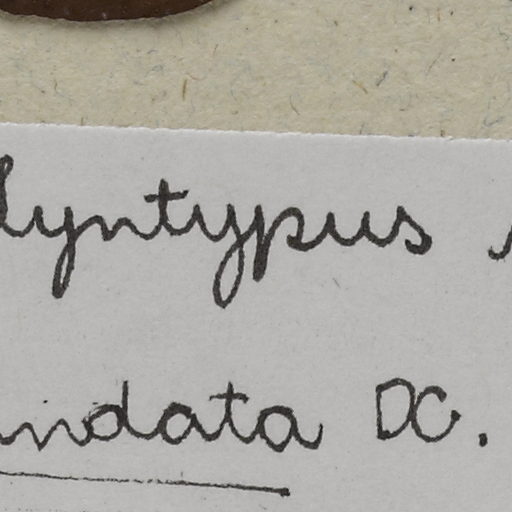 yntypus
ndata DC.